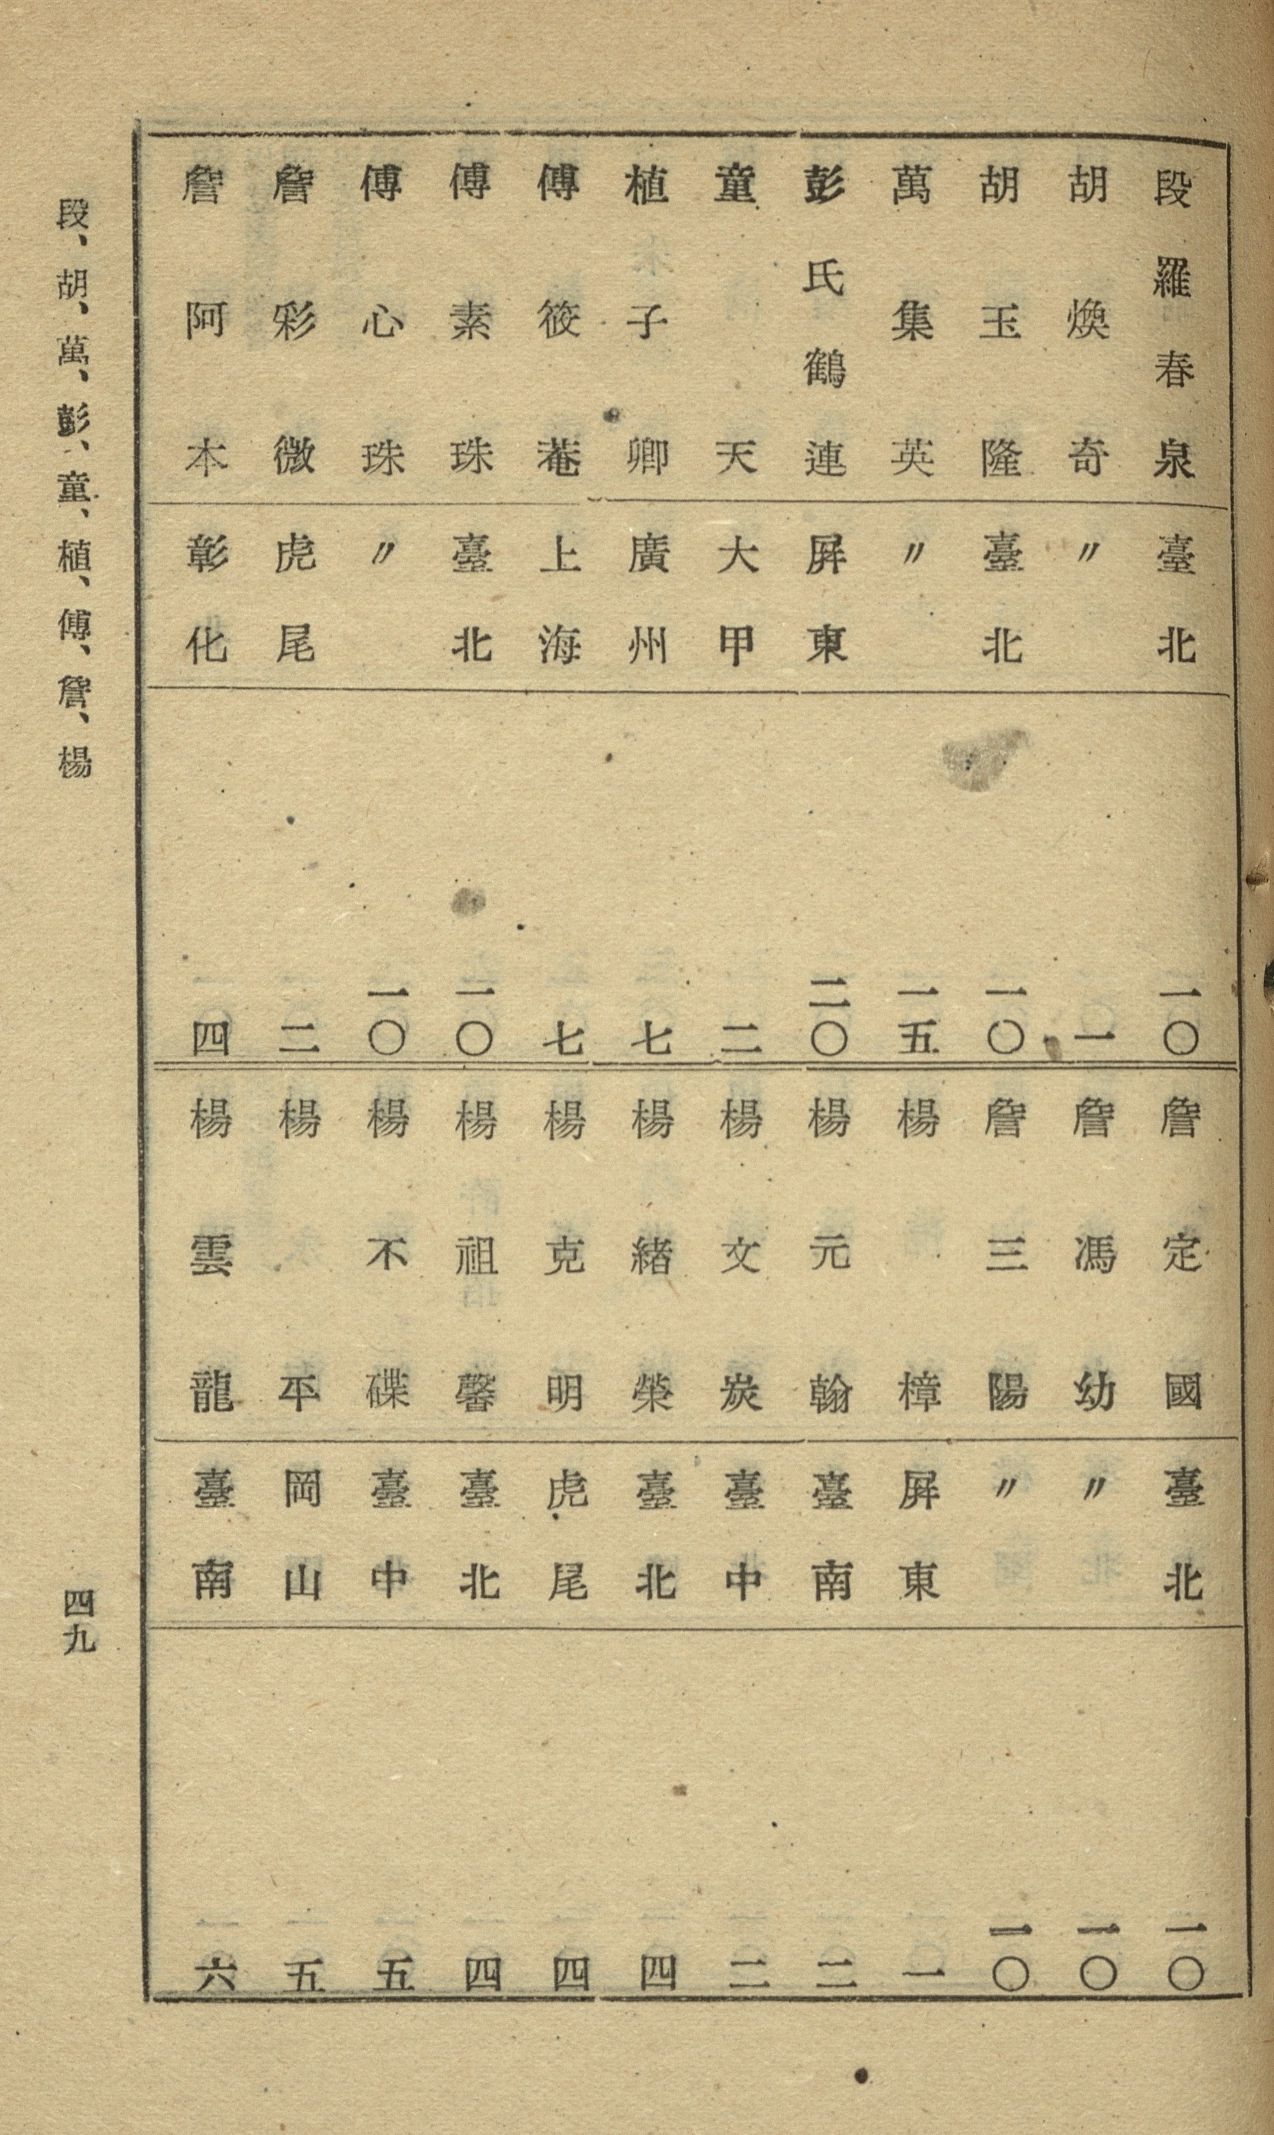 段羅春泉 臺北 一〇
胡煥奇 〃 一
胡玉隆 臺北 一〇
萬集英 〃 一五
彭氏鶴連 屏東 二〇
童天 大甲 二
植子卿 廣州 七
傅筱菴 上海 七
傅素珠 臺北 一〇
傅心珠 〃 一〇
詹彩微 虎尾 二
詹阿本 彰化 四
詹定國 臺北 一〇
詹馮幼 〃 一〇
詹三陽 〃 一〇
楊樟 屏東 一
楊元翰 臺南 二
楊文炭 臺中 二
楊緒榮 臺北 四
楊克明 虎尾 四
楊祖馨 臺北 四
楊不碟 臺中 五
楊平 岡山 五
楊雲龍 臺南 六
段、胡、萬、彭、童、植、傅、詹、楊
四九